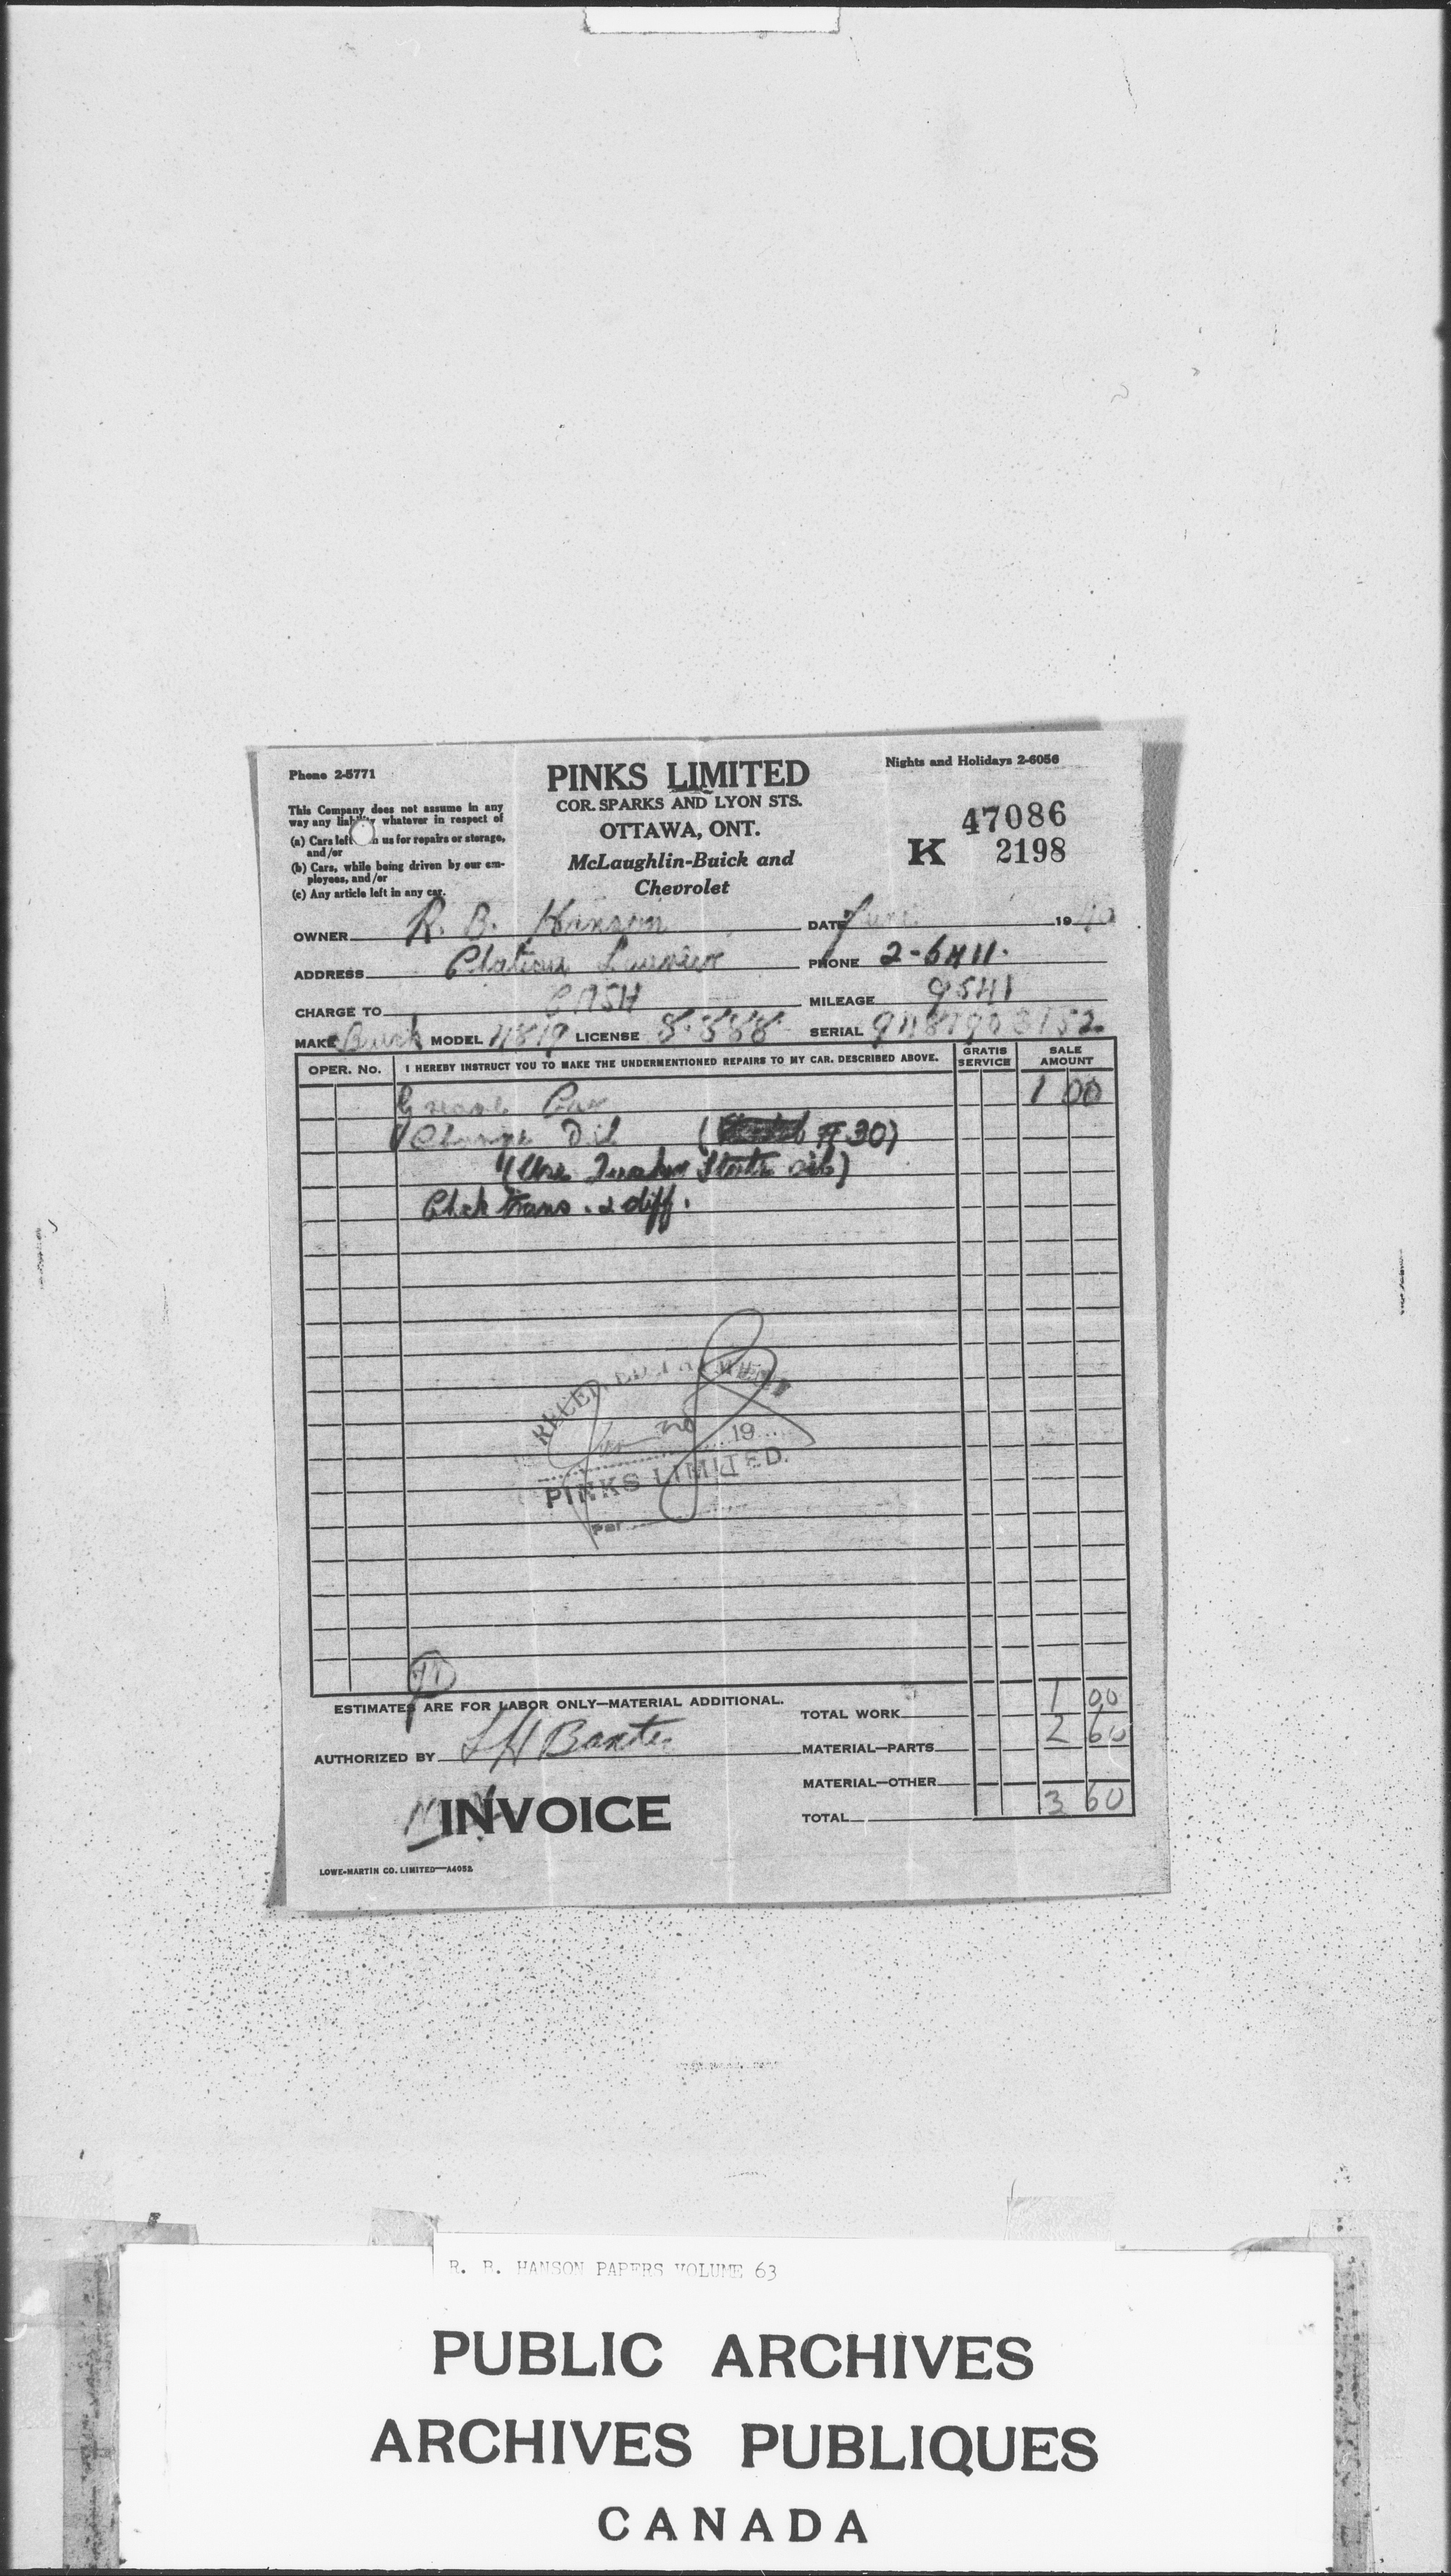 Phone 2-5771
PINKS LIMITED
Nights and Holidays 2-6056
COR. SPARKS AND LYON STS.
OTTAWA, ONT.
McLaughlin-Buick and
Chevrolet
This Company does not assume in any
way any liability whatever in respect of
(a) Cars left us for repairs or storage,
and/or
(b) Cars, while being driven by our em-
ployees, and/or
(c) Any article left in any car.
47086
K 2198
OWNER R. B. Hanson DATE June 1940
ADDRESS Chateau Laurier PHONE 2-6411.
CHARGE TO CASH MILEAGE 9541
MAKE Buick MODEL 4819 LICENSE 8-588 SERIAL
OPER. No. I HEREBY INSTRUCT YOU TO MAKE THE UNDERMENTIONED REPAIRS TO MY CAR. DESCRIBED ABOVE. GRATIS SERVICE SALE AMOUNT
Grease Car 1 00
Change Oil ( # 30)
(Use Quaker State oil)
Chek trans. & diff.
RECEIVED PAYMENT
19
PINKS LIMITED.
Per
ESTIMATES ARE FOR LABOR ONLY—MATERIAL ADDITIONAL.
TOTAL WORK 1 00
AUTHORIZED BY L H Baxter
MATERIAL—PARTS 2 60
MATERIAL—OTHER
INVOICE
TOTAL 3 60
LOWE-MARTIN CO. LIMITED—A4052
R. B. HANSON PAPERS VOLUME 63
PUBLIC ARCHIVES
ARCHIVES PUBLIQUES
CANADA